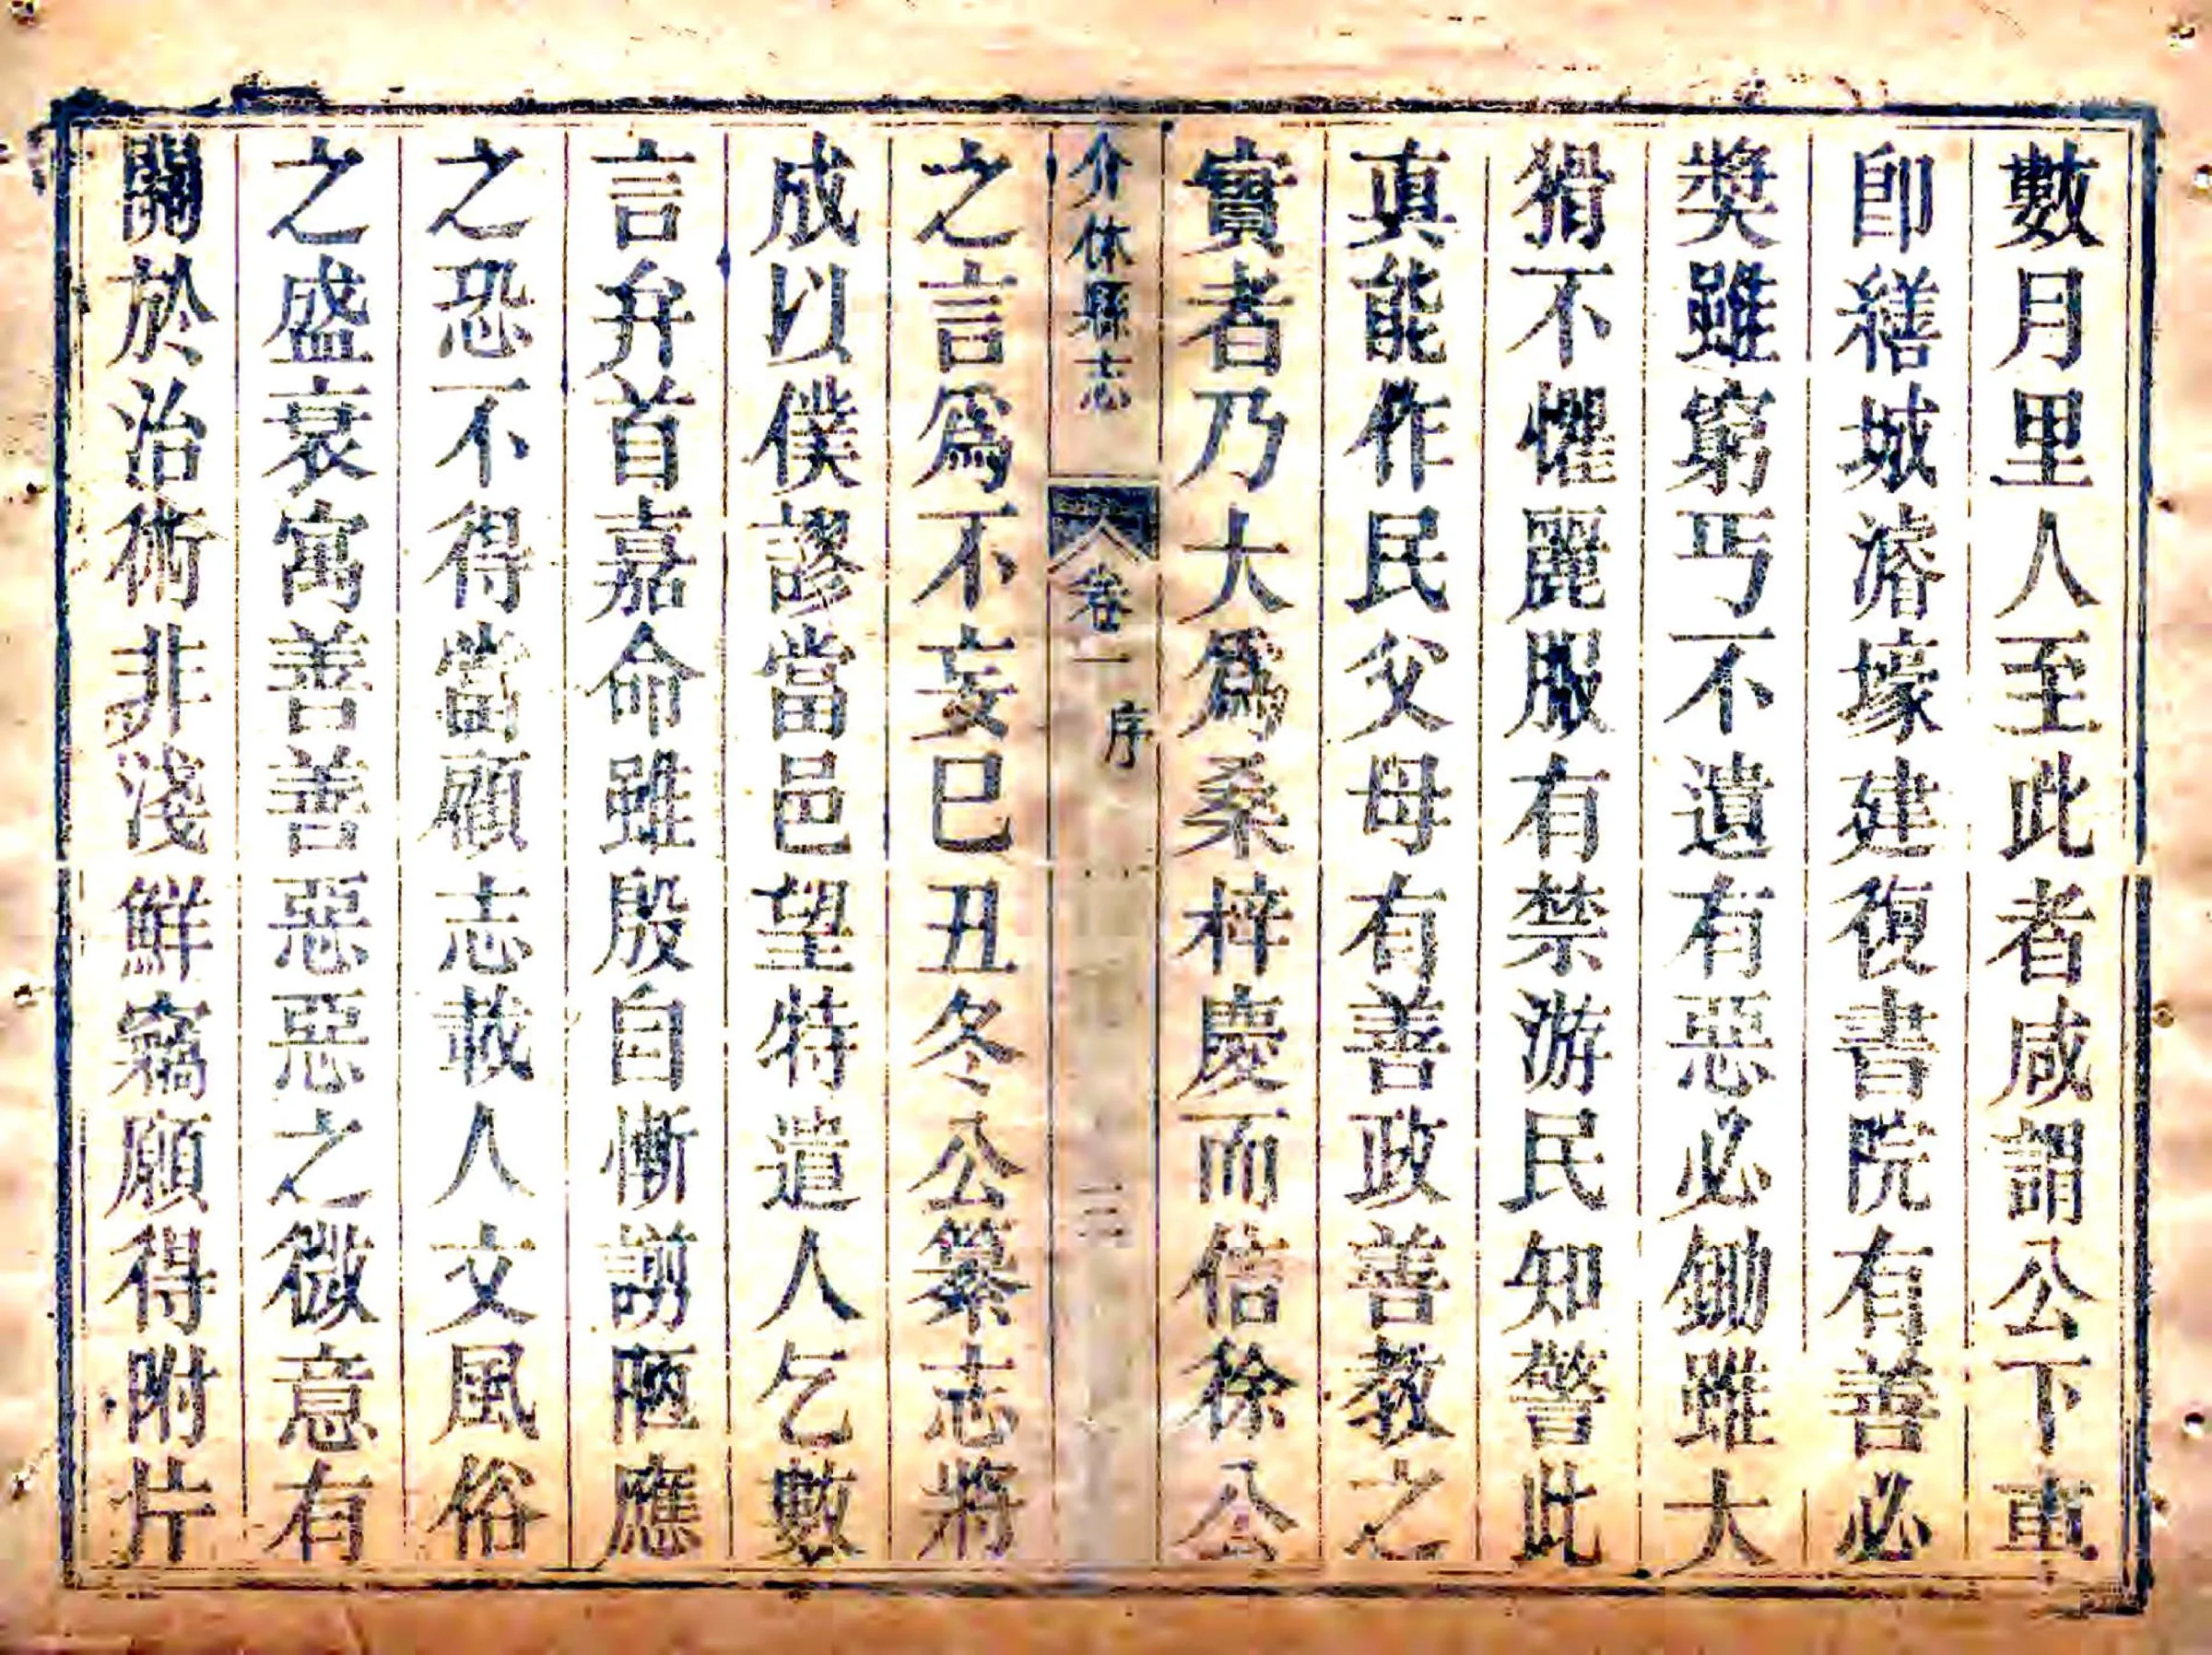 數月里人至此者咸謂公下車
卽繕城濬壕建復書院有善必
奬雖窮丐不遺有惡必鋤雖大
猾不懼麗服有禁游民知警此
眞能作民父母有善政善教之
實者乃大爲桑梓慶而信徐公
介休縣志 卷一 序 三
之言爲不妄巳丑冬公纂志將
成以僕謬當邑望特遣人乞數
言弁首嘉命雖殷自慚謭陋應
之恐不得當顧志載人文風俗
之盛衰寓善善惡惡之微意有
關於治術非淺鮮竊願得附片